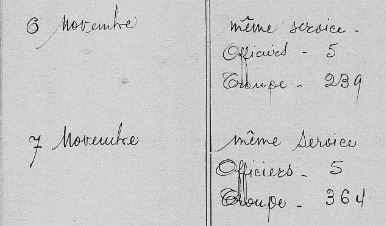 6 Novembre même service.
Officiers - 5
Troupe - 239
7 Novembre même service
Officiers - 5
Troupe - 364